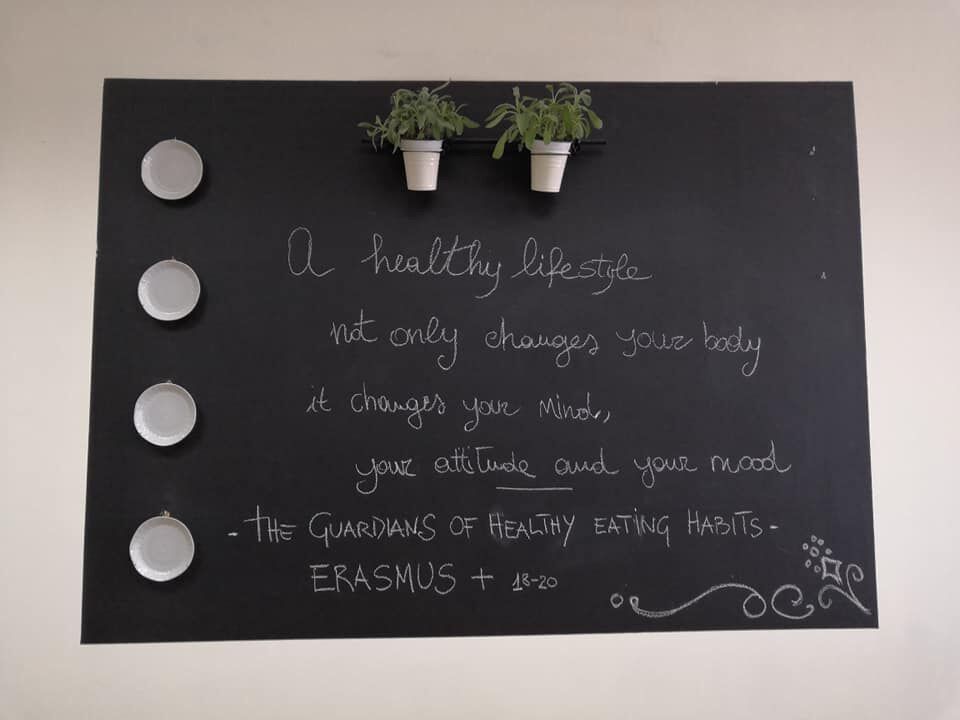 A healthy lifestyle
not only changes your body
it changes your mind,
your attitude and your mood
- THE GUARDIANS OF HEALTHY EATING HABITS -
ERASMUS + 18-20